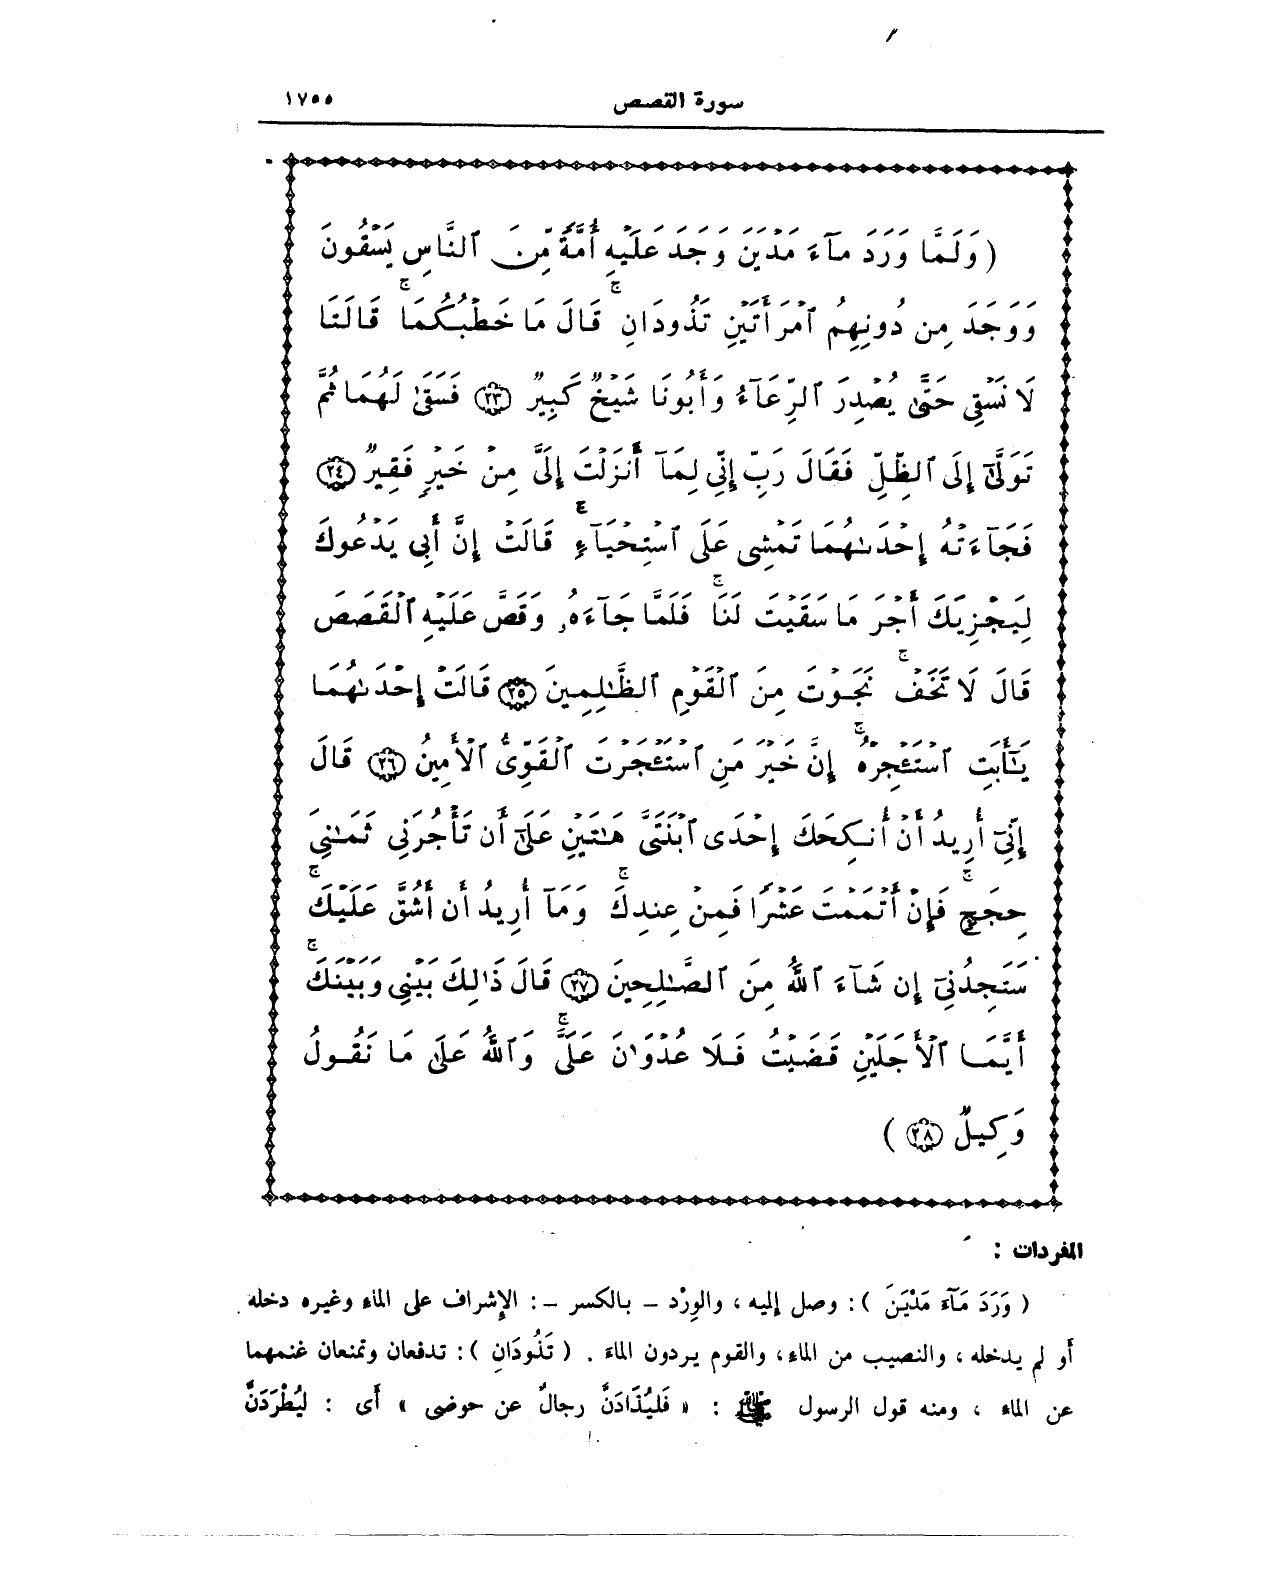 سورة القصص ١٧٥٥
( وَلَمَّا وَرَدَ مَآءَ مَدْيَنَ وَجَدَ عَلَيْهِ أُمَّةً مِّنَ ٱلنَّاسِ يَسْقُونَ
وَوَجَدَ مِن دُونِهِمُ ٱمْرَأَتَيْنِ تَذُودَانِ ۖ قَالَ مَا خَطْبُكُمَا ۖ قَالَتَا
لَا نَسْقِى حَتَّىٰ يُصْدِرَ ٱلرِّعَآءُ وَأَبُونَا شَيْخٌ كَبِيرٌ ﴿٢٣﴾ فَسَقَىٰ لَهُمَا ثُمَّ
تَوَلَّىٰٓ إِلَى ٱلظِّلِّ فَقَالَ رَبِّ إِنِّى لِمَآ أَنزَلْتَ إِلَىَّ مِنْ خَيْرٍ فَقِيرٌ ﴿٢٤﴾
فَجَآءَتْهُ إِحْدَىٰهُمَا تَمْشِى عَلَى ٱسْتِحْيَآءٍ قَالَتْ إِنَّ أَبِى يَدْعُوكَ
لِيَجْزِيَكَ أَجْرَ مَا سَقَيْتَ لَنَا ۚ فَلَمَّا جَآءَهُۥ وَقَصَّ عَلَيْهِ ٱلْقَصَصَ
قَالَ لَا تَخَفْ ۚ نَجَوْتَ مِنَ ٱلْقَوْمِ ٱلظَّٰلِمِينَ ﴿٢٥﴾ قَالَتْ إِحْدَىٰهُمَا
يَٰٓأَبَتِ ٱسْتَـْٔجِرْهُ ۚ إِنَّ خَيْرَ مَنِ ٱسْتَـْٔجَرْتَ ٱلْقَوِىُّ ٱلْأَمِينُ ﴿٢٦﴾ قَالَ
إِنِّىٓ أُرِيدُ أَنْ أُنكِحَكَ إِحْدَى ٱبْنَتَىَّ هَٰتَيْنِ عَلَىٰٓ أَن تَأْجُرَنِى ثَمَٰنِىَ
حِجَجٍ ۚ فَإِنْ أَتْمَمْتَ عَشْرًا فَمِنْ عِندِكَ ۚ وَمَآ أُرِيدُ أَنْ أَشُقَّ عَلَيْكَ ۚ
سَتَجِدُنِىٓ إِن شَآءَ ٱللَّهُ مِنَ ٱلصَّٰلِحِينَ ﴿٢٧﴾ قَالَ ذَٰلِكَ بَيْنِى وَبَيْنَكَ ۚ
أَيَّمَا ٱلْأَجَلَيْنِ قَضَيْتُ فَلَا عُدْوَٰنَ عَلَىَّ ۚ وَٱللَّهُ عَلَىٰ مَا نَقُولُ
وَكِيلٌ ﴿٢٨﴾ )
المفردات :
( وَرَدَ مَآءَ مَدْيَنَ ) : وصل إليه ، والوِرْد - بالكسر - : الإشراف على الماء وغيره دخله
أو لم يدخله ، والنصيب من الماء ، والقوم يردون الماء . ( تَذُودَانِ ) : تدفعان وتمنعان غنمهما
عن الماء ، ومنه قول الرسول ﷺ : « فَلَيُذَادَنَّ رجالٌ عن حوضى » أى : لَيُطْرَدَنَّ